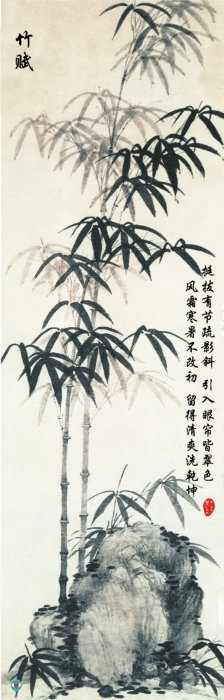 竹赋
挺拔有节疏影斜 引入眼帘皆翠色
风霜寒暑不改初 留得清爽洗乾坤